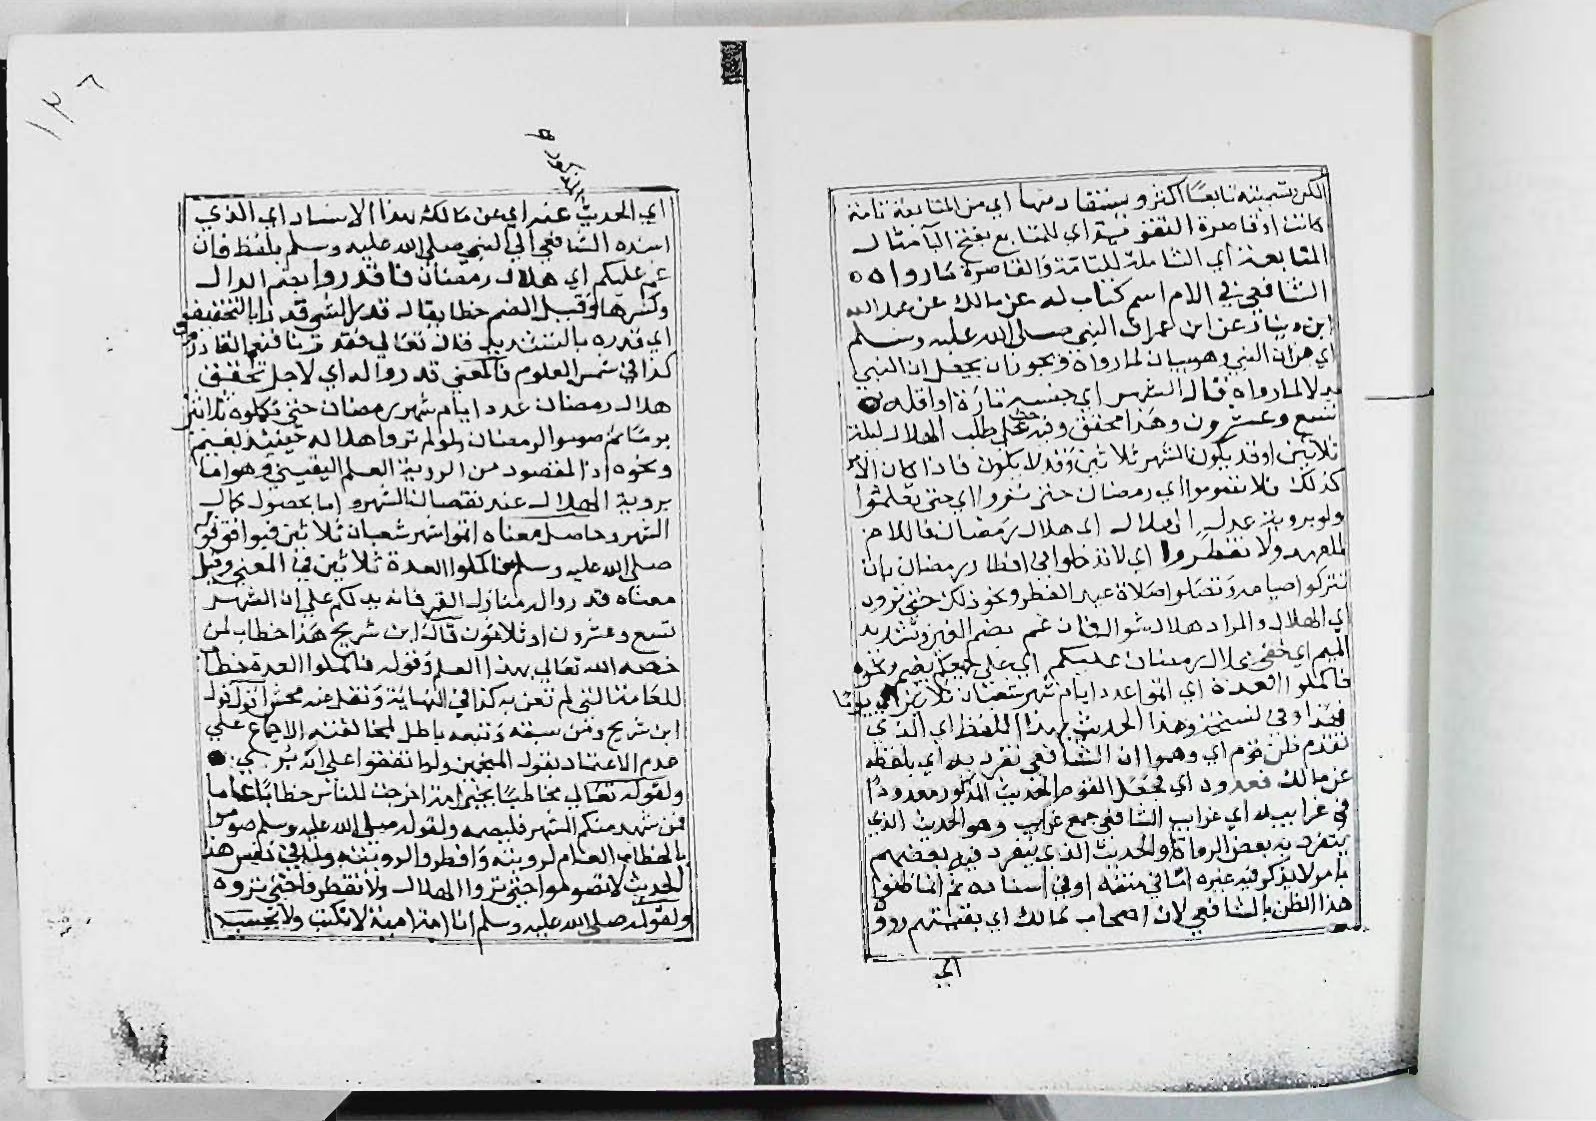 لكن تسميته تابعا اكثر ويستفاد منها اي من المتابعة تامة
كانت او قاصرة التقوية اي للمتابع بفتح البا مثال
المتابعة اي الشاملة للتامة والقاصرة ما رواه
الشافعي في الام اسم كتاب له عن مالك عن عبد الله
ابن دينار عن ابن عمر ان النبي صلى الله عليه وسلم
اي من ان النبي وهو بيان لما رواه ويجوز ان يجعل ان النبي
بدلا لما رواه قال الشهر اي جنسه تارة او اقله
تسع وعشرون وهذا محقق وفيه حث على طلب الهلال ليلة
ثلاثين او قد يكون الشهر ثلاثين وقد لا يكون فاذا كان الامر
كذلك فلا تصوموا اي رمضان حتى تروا اي حتى تعلموا
ولو برؤية عدل الهلال اي هلال رمضان فاللام
للعهد ولا تفطروا اي لا تدخلوا في افطار رمضان بان
تتركوا صيامه وتصلوا صلاة عيد الفطر ونحو ذلك حتى تروه
اي الهلال والمراد هلال شوال فان غم بضم الغين وتشديد
الميم اي خفي هلال رمضان عليكم اي على جميعكم بغيم ونحوه
فاكملوا العدة اي اتموا عدد ايام شهر شعبان ثلاثين اي يوما
كذا وفي نسخة وهذا الحديث بهذا اللفظ اي الذي
تقدم ظن قوم اي وهموا ان الشافعي تفرد به اي بلفظه
عن مالك فعدوه اي فجعل القوم الحديث المذكور معدودا
في غرايبه اي غرايب الشافعي جمع غرايب وهو الحديث الذي
يتفرد به بعض الرواة او الحديث الذي يتفرد فيه بعضهم
بامر لا يذكر فيه غيره اما في متنه او في اسناده ثم انما ظنوا
هذا الظن بالشافعي لان اصحاب مالك اي بقيتهم رووه
اي
١٣٦
المذكور
اي الحديث عنه اي عن مالك بهذا الاسناد اي الذي
اسنده الشافعي الى النبي صلى الله عليه وسلم بلفظ فان
غم عليكم اي هلال رمضان فاقدروا بضم الدال
وكسرها وقيل الضم خطا يقال قدر الشي قدرا بالتخفيف
اي قدره بالتشديد قال تعالى فقدرنا فنعم القادرون
كذا في شمس العلوم فالمعنى قدروا له اي لاجل تحقيق
هلال رمضان عدد ايام شهر رمضان حتى تكملوه ثلاثين
يوما ثم صوموا لرمضان ولو لم تروا هلاله حينئذ لغيم
ونحوه اذ المقصود من الروية العلم اليقيني وهو اما
بروية الهلال عند نقصان الشهر واما بحصول كمال
الشهر وحاصل معناه اتموا شهر شعبان ثلاثين فيوافق قوله
صلى الله عليه وسلم فاكملوا العدة ثلاثين في المعنى وقيل
معناه قدروا له منازل القمر فانه يدلكم على ان الشهر
تسع وعشرون او ثلاثون قال ابن شريح هذا خطاب لمن
خصه الله تعالى بهذا العلم وقوله فاكملوا العدة خطاب
للعامة التي لم تعن به كذا في النهاية ونقله عنه محش اقول قول
ابن شريح ومن سبقه وتبعه باطل لمخالفته الاجماع على
عدم الاعتماد بقول المنجمين ولو اتفقوا على انه يرى
ولقوله تعالى مخاطبا بخير امة اخرجت للناس خطابا عاما
فمن شهد منكم الشهر فليصمه ولقوله صلى الله عليه وسلم صوموا
بالخطاب العام لرويته وافطروا لرويته ولما في نفس هذا
الحديث لا تصوموا حتى تروا الهلال ولا تفطروا حتى تروه
ولقوله صلى الله عليه وسلم انا امة امية لا نكتب ولا نحسب